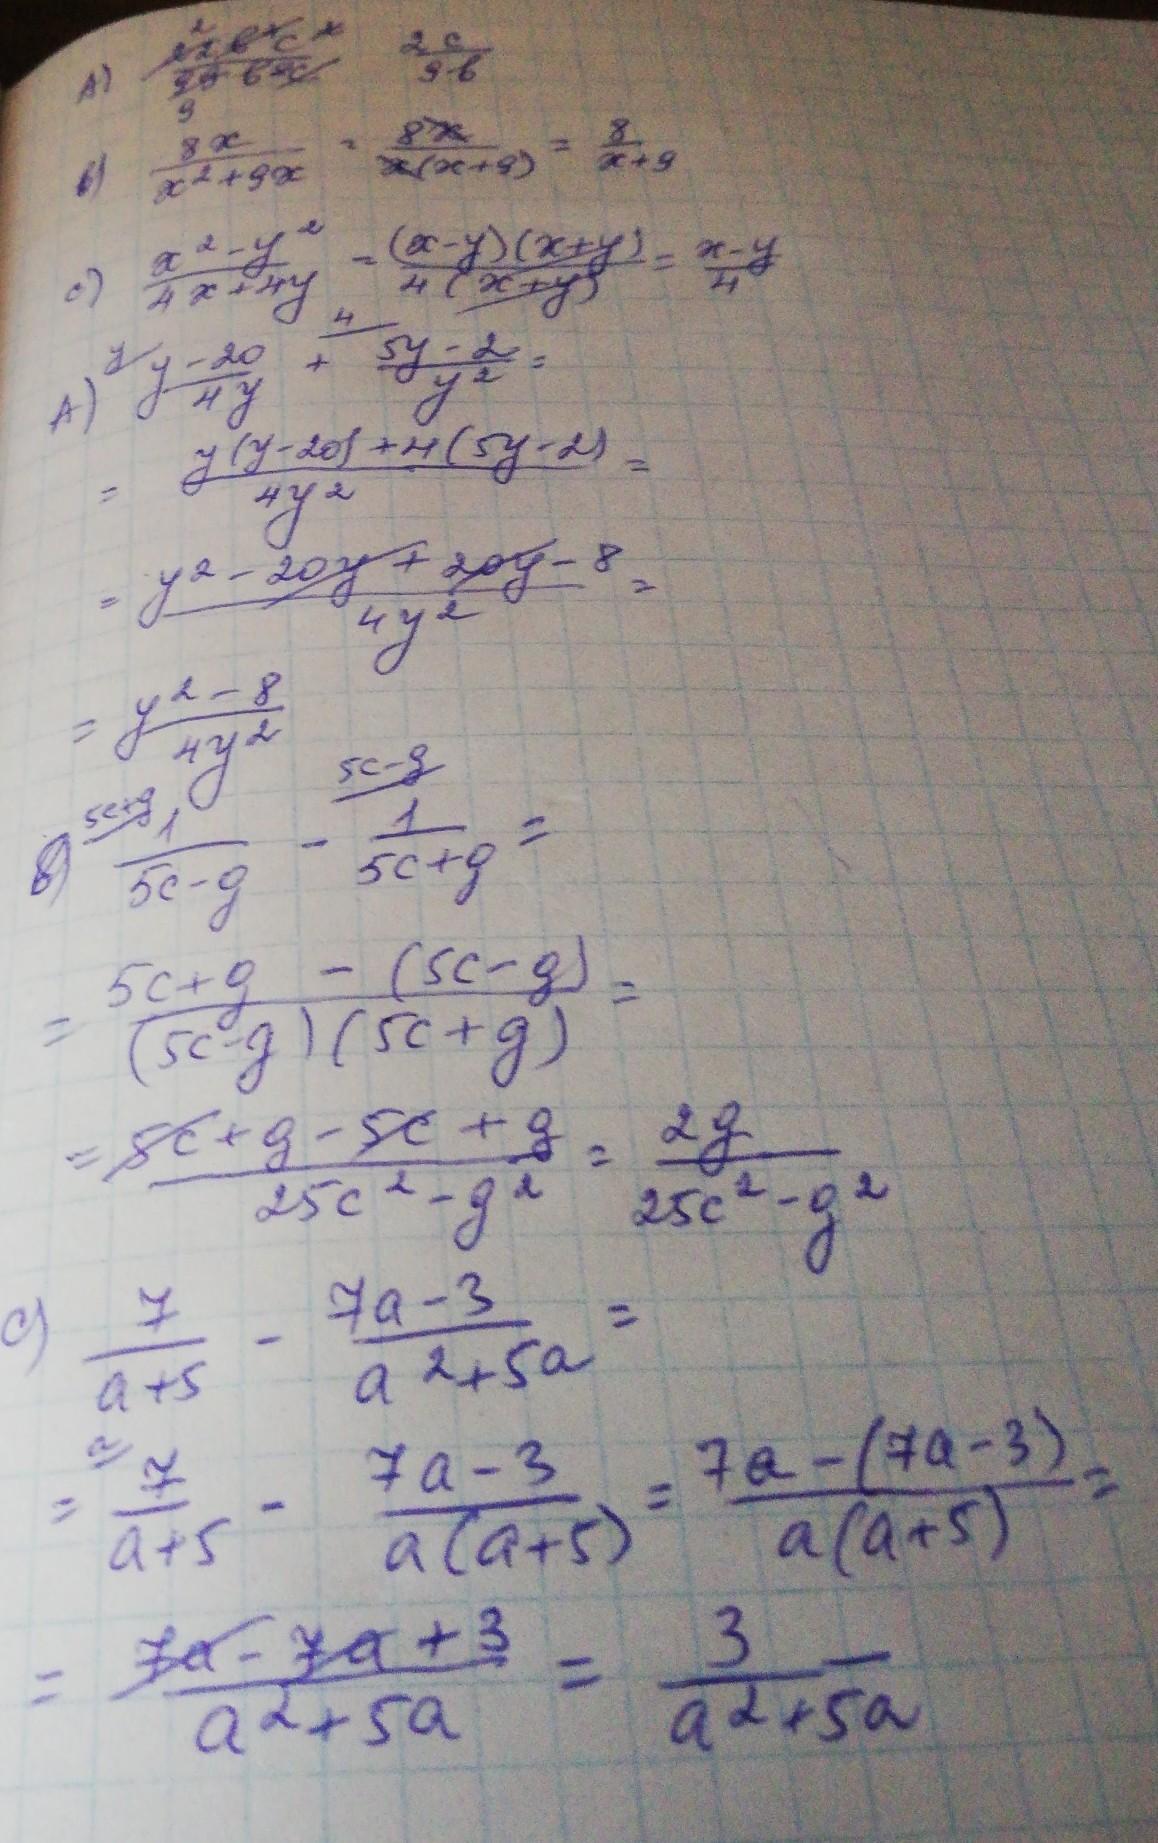 A) 2c/9b
в) 8x/(x²+9x) = 8x/(x(x+9)) = 8/(x+9)
c) (x²-y²)/(4x+4y) = (x-y)(x+y)/(4(x+y)) = (x-y)/4
y 4
A) (y-20)/(4y) + (5y-2)/y² =
= (y(y-20)+4(5y-2))/(4y²) =
= (y²-20y+20y-8)/(4y²) =
= (y²-8)/(4y²)
5c+g 5c-g
в) 1/(5c-g) - 1/(5c+g) =
= (5c+g - (5c-g))/((5c-g)(5c+g)) =
= (5c+g-5c+g)/(25c²-g²) = 2g/(25c²-g²)
c) 7/(a+5) - (7a-3)/(a²+5a) =
a
= 7/(a+5) - (7a-3)/(a(a+5)) = (7a-(7a-3))/(a(a+5)) =
= (7a-7a+3)/(a²+5a) = 3/(a²+5a)